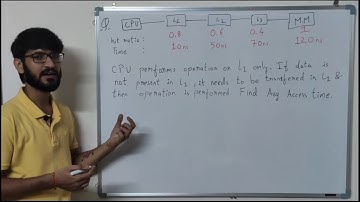 Q. CPU L1 L2 L3 M.M
hit ratio: 0.8 0.6 0.4 1
Time: 10ns 50ns 70ns 120ns
CPU performs operation on L1 only. If data is
not present in L1, it needs to be transfered in L1 &
then operation is performed Find Avg Access time.